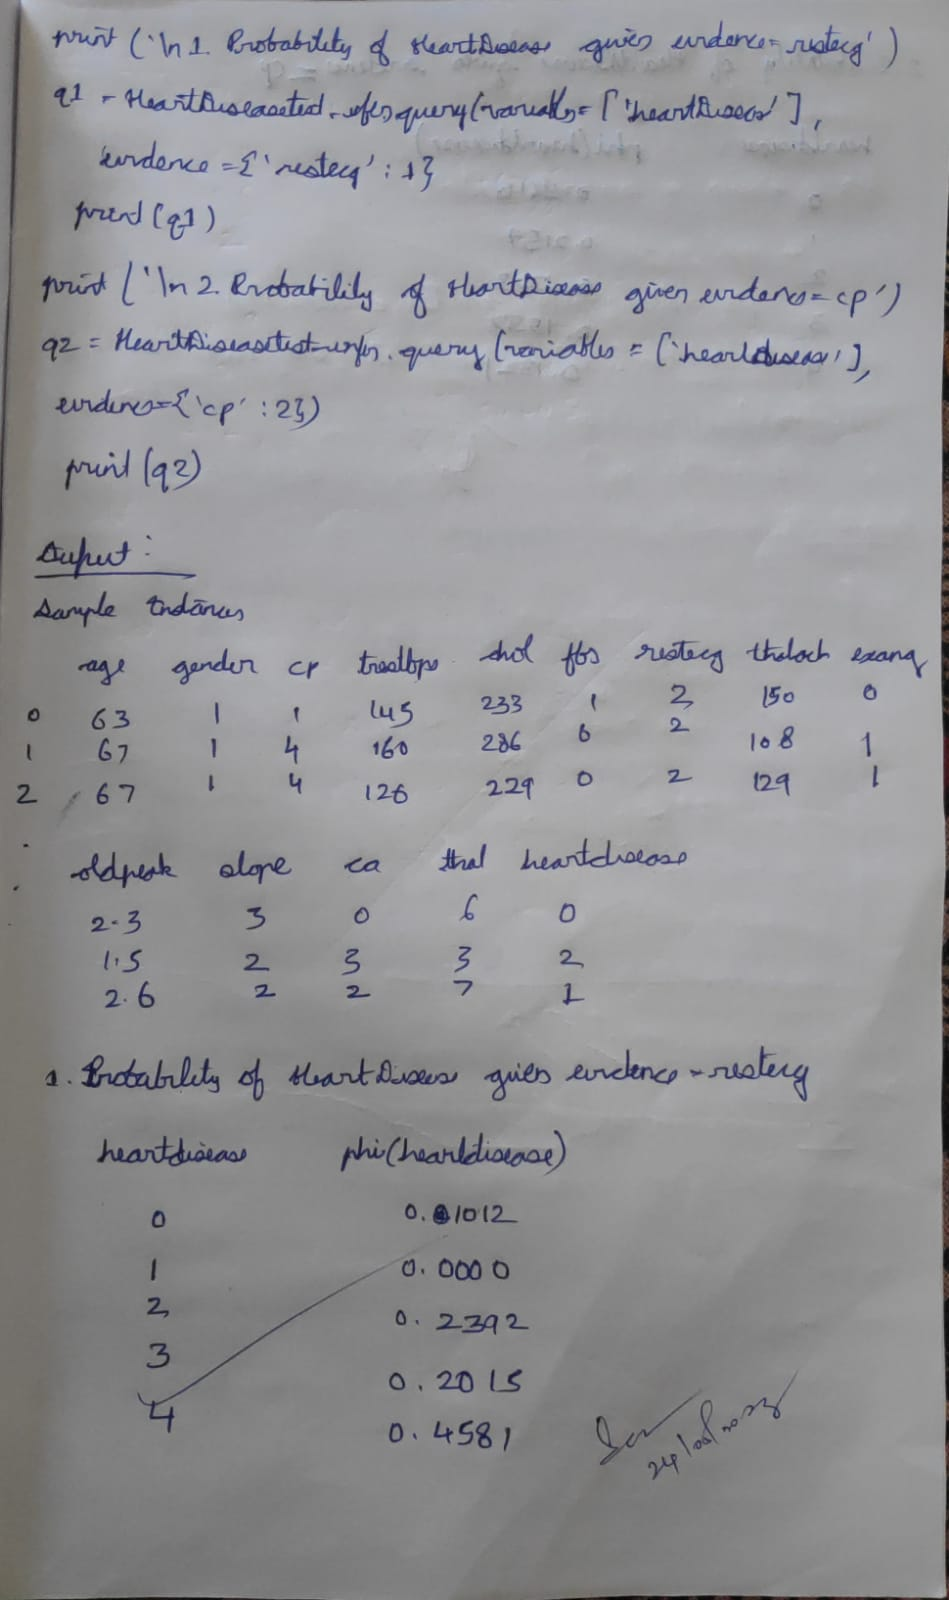 print ('\n 1. Probability of HeartDisease given evidence= restecg' )
q1 = HeartDiseasetest_infer.query(variables= ['heartDisease'],
evidence ={'restecg' : 1}
print (q1)
print ('\n 2. Probability of HeartDisease given evidence= cp')
q2 = HeartDiseasetest_infer.query (variables = ['heartdisease'],
evidence={'cp' : 2})
print (q2)
Output :
Sample Instances
age gender cp trestbps chol fbs restecg thalach exang
0 63 1 1 145 233 1 2 150 0
1 67 1 4 160 286 0 2 108 1
2 67 1 4 120 229 0 2 129 1
oldpeak slope ca thal heartdisease
2.3 3 0 6 0
1.5 2 3 3 2
2.6 2 2 7 1
1. Probability of HeartDisease given evidence = restecg
heartdisease phi(heartdisease)
0 0.1012
1 0.0000
2 0.2392
3 0.2015
4 0.4581